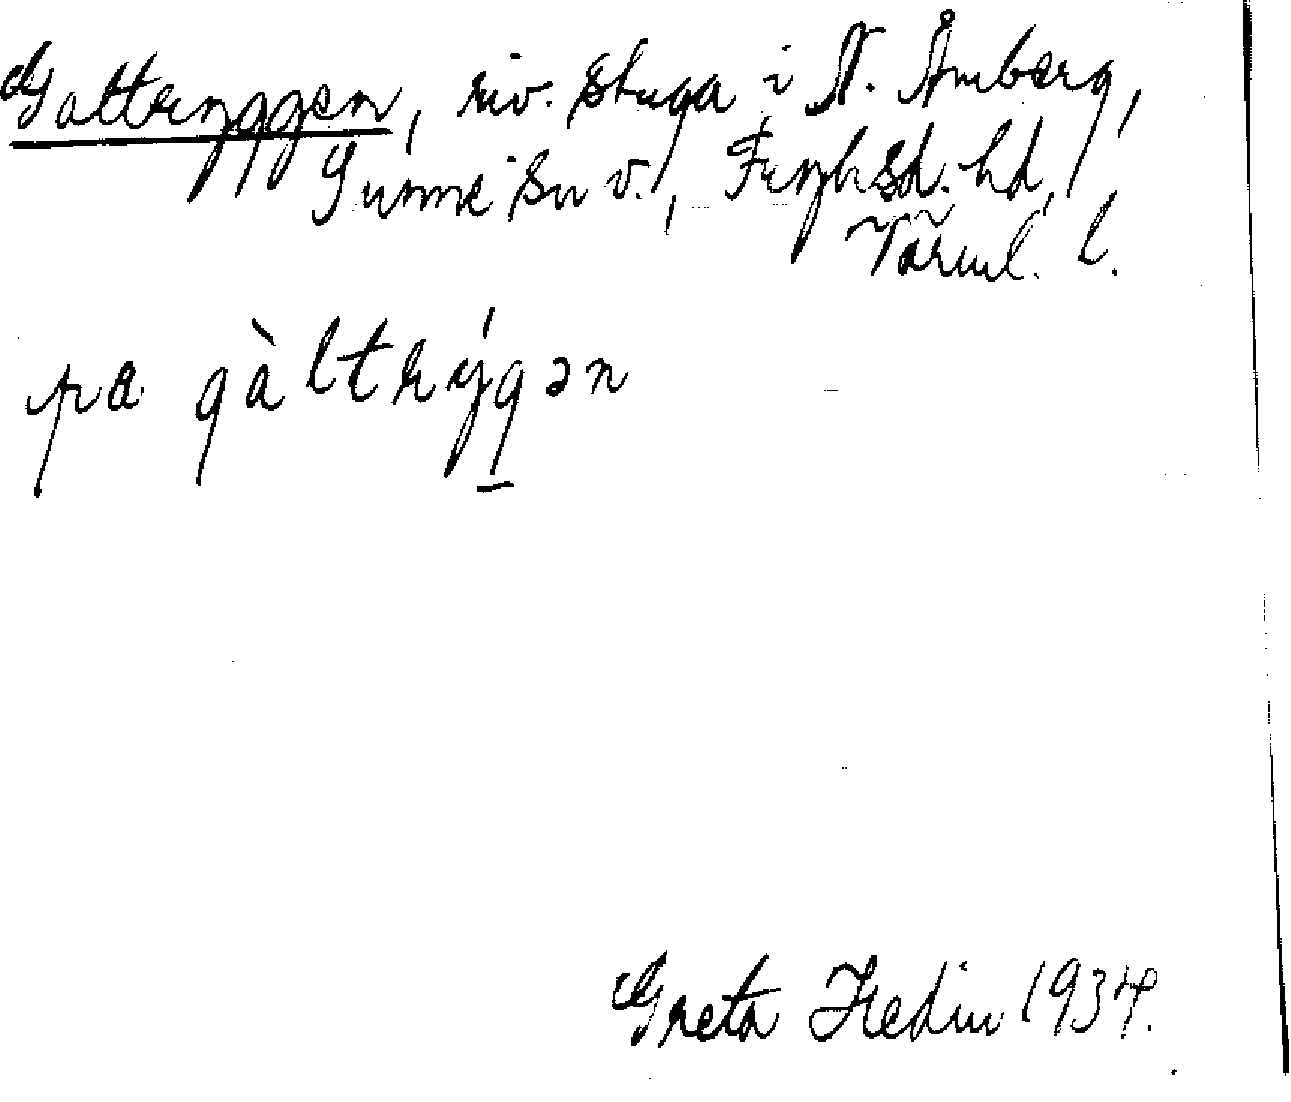 Galtryggen, riv. stuga i N. Åmberg,
Sunne sn v., Fryksd. hd,
Värml. l.
pa gàltrýgən
Greta Hedin 1934.